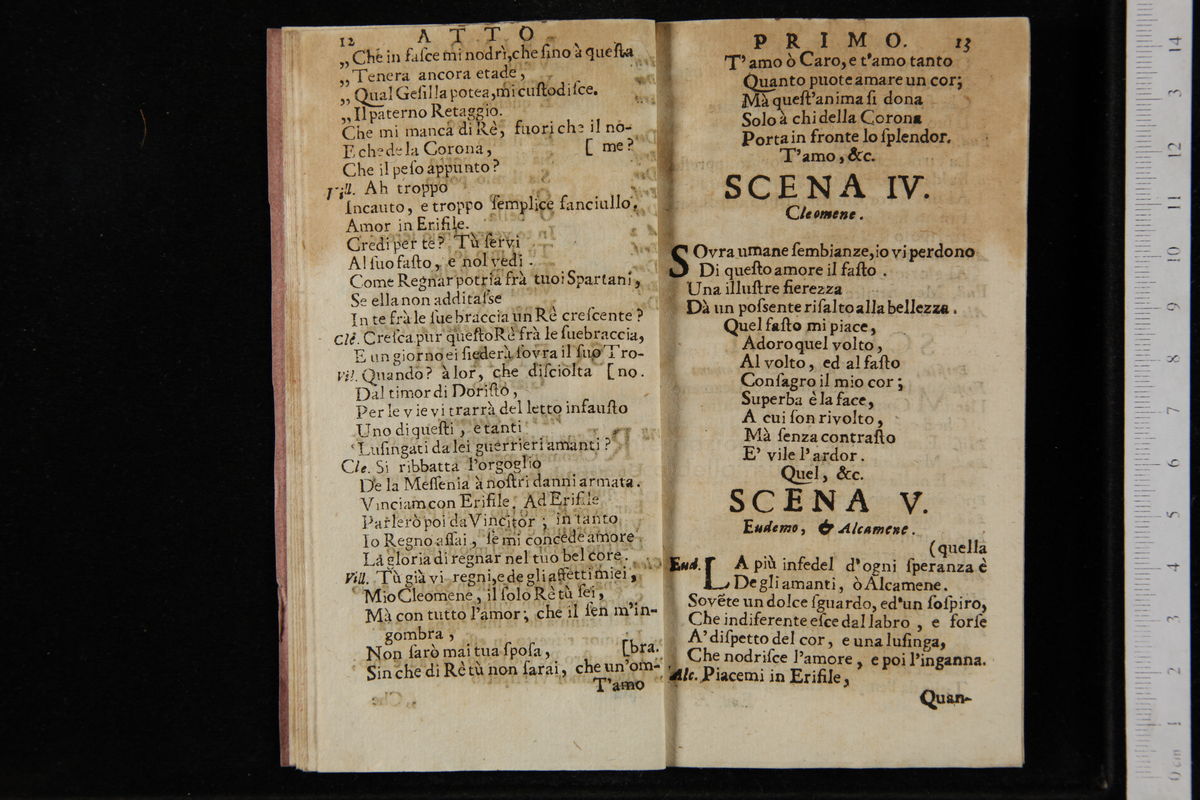 12 ATTO
„Che in faſce mi nodrì, che ſino à queſta
„Tenera ancora etade,
„Qual Geſilla potea, mi cuſtodiſce.
„Il paterno Retaggio.
Che mi manca di Rè, fuori che il no-
E che de la Corona, [ me?
Che il peſo appunto?
Vill. Ah troppo
Incauto, e troppo ſemplice fanciullo.
Amor in Erifile.
Credi per te? Tù ſervi
Al ſuo faſto, e nol vedi.
Come Regnar potria frà tuoi Spartani,
Se ella non additaſse
In te frà le ſue braccia un Rè creſcente?
Cle. Creſca pur queſto Rè frà le ſue braccia,
E un giorno ei ſiederà ſovra il ſuo Tro-
Vil. Quando? à lor, che diſciolta [no.
Dal timor di Doriſto,
Per le vie vi trarrà del letto infauſto
Uno di queſti, e tanti
Luſingati da lei guerrieri amanti?
Cle. Si ribbatta l'orgoglio
De la Meſſenia à noſtri danni armata.
Vinciam con Erifile. Ad Erifile
Parlerò poi da Vincitor; in tanto
Io Regno aſſai, ſe mi concede amore
La gloria di regnar nel tuo bel core.
Vill. Tù già vi regni, e de gli affetti miei,
Mio Cleomene, il ſolo Rè tù ſei,
Mà con tutto l'amor; che il ſen m'in-
gombra,
Non ſarò mai tua ſpoſa, [bra.
Sin che di Rè tù non ſarai, che un'om-
T'amo
PRIMO. 13
T'amo ò Caro, e t'amo tanto
Quanto puote amare un cor;
Mà queſt'anima ſi dona
Solo à chi della Corona
Porta in fronte lo ſplendor.
T'amo, &c.
SCENA IV.
Cleomene.
SOvra umane ſembianze, io vi perdono
Di queſto amore il faſto.
Una illuſtre fierezza
Dà un poſsente riſalto alla bellezza.
Quel faſto mi piace,
Adoro quel volto,
Al volto, ed al faſto
Conſagro il mio cor;
Superba è la face,
A cui ſon rivolto,
Mà ſenza contraſto
E' vile l'ardor.
Quel, &c.
SCENA V.
Eudemo, & Alcamene.
(quella
Eud. LA più infedel d'ogni ſperanza è
De gli amanti, ò Alcamene.
Sovẽte un dolce ſguardo, ed'un ſoſpiro,
Che indiferente eſce dal labro, e forſe
A' diſpetto del cor, e una luſinga,
Che nodriſce l'amore, e poi l'inganna.
Alc. Piacemi in Erifile,
Quan-